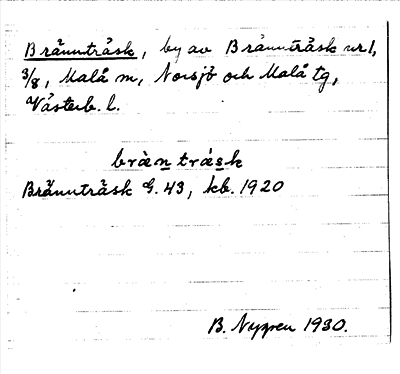 Brännträsk, by av Brännträsk nr 1,
3/8, Malå sn, Norsjö och Malå tg,
Västerb. l.
bràn träsk
Brännträsk G. 43, kb. 1920
B. Nygren 1930.